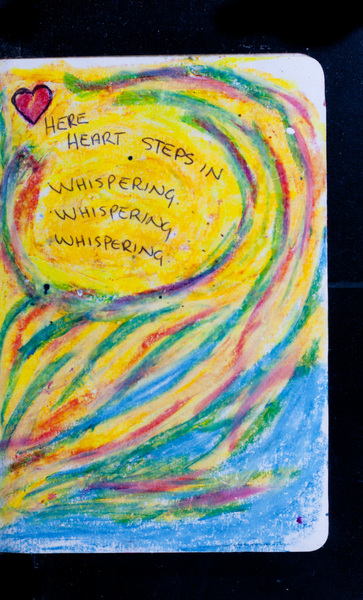 HERE
HEART STEPS IN
WHISPERING.
WHISPERING,
WHISPERING.